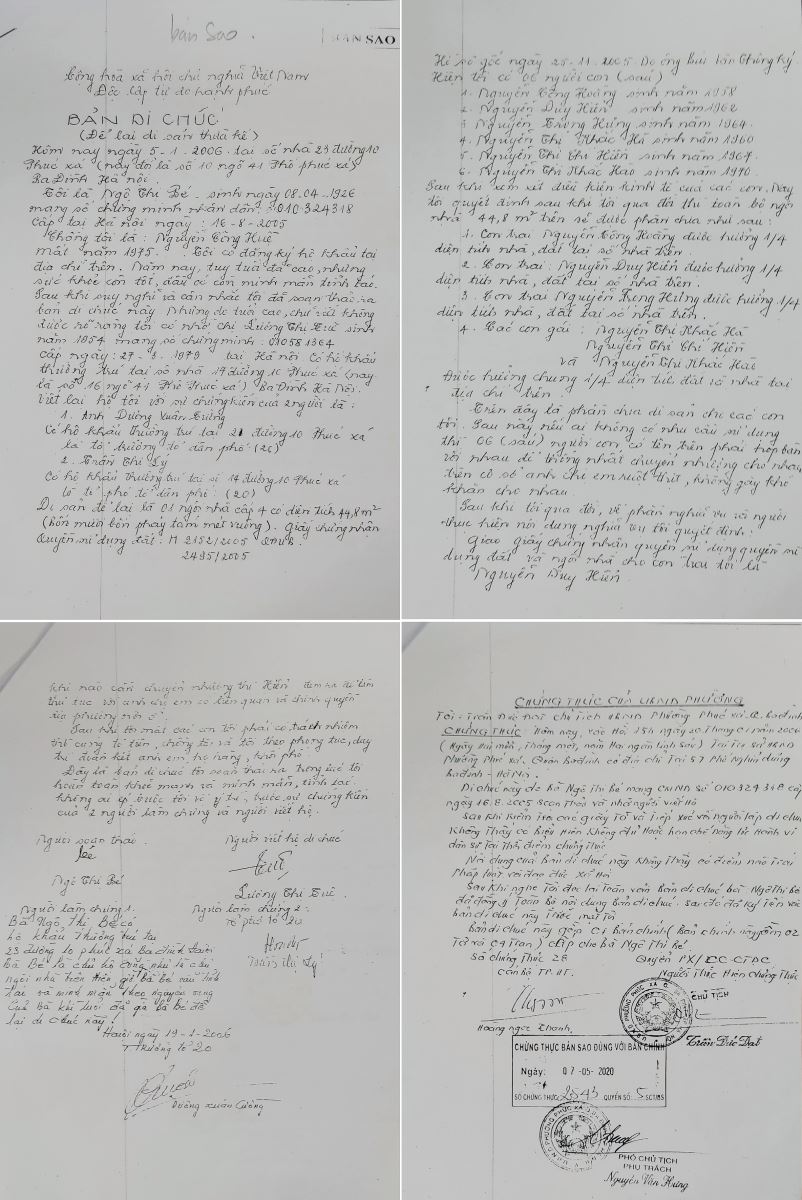 bản sao.
BẢN SAO
Cộng hòa xã hội chủ nghĩa Việt Nam
Độc lập tự do hạnh phúc
BẢN DI CHÚC
(Để lại di sản thừa kế)
Hôm nay ngày 5-1-2006. tại số nhà 23 đường 10
Phúc xá (nay đổi là số 10 ngõ 41 Phố phúc xá)
Ba Đình Hà nội.
Tôi là Ngô Thị Bé. sinh ngày 08.04-1926
mang số chứng minh nhân dân: 010324318
Cấp tại Hà nội ngày: 16-8-2005
Chồng tôi là: Nguyễn Công Huệ
Mất năm 1975. Tôi có đăng ký hộ khẩu tại
địa chỉ trên. Năm nay, tuy tuổi đã cao, nhưng
sức khỏe còn tốt, đầu óc còn minh mẫn tỉnh táo.
Sau khi suy nghĩ và cân nhắc tôi đã soạn thảo ra
bản di chúc này. Nhưng do tuổi cao, chữ viết không
được rõ ràng tôi có nhờ chị Lương Thị Tuê sinh
năm 1954 mang số chứng minh: 010581364
Cấp ngày: 27-3-1979 tại Hà nội. Có hộ khẩu
thường trú tại số nhà 19 đường 10 Phúc xá (nay
là số 16 ngõ 41 Phố Phúc xá) Ba Đình Hà Nội.
Viết lại hộ tôi với sự chứng kiến của 2 người là:
1. Anh Dương Xuân Cường
Có hộ khẩu thường trú tại 21 đường 10 Phúc xá
là tổ trưởng tổ dân phố (20)
2. Trần Thị Lý
Có hộ khẩu thường trú tại số 14 đường 10 Phúc xá
là tổ phó tổ dân phố: (20)
Di sản để lại là 01 ngôi nhà cấp 4 có diện tích 44,8m²
(bốn mươi bốn phẩy tám mét vuông). Giấy chứng nhận
Quyền sử dụng đất: H 2152/2005
2495/2005
Hồ sơ gốc ngày 25-11-2005. Do ông Bùi Văn Chông ký.
Hiện tôi có 06 người con (sáu)
1. Nguyễn Công Hoàng sinh năm 1958
2. Nguyễn Duy Hiên sinh năm 1962
3. Nguyễn Trọng Hưng sinh năm 1964.
4. Nguyễn Thị Khắc Hà sinh năm 1960
5. Nguyễn Thị Chi Hiền sinh năm 1967.
6. Nguyễn Thị Khắc Hảo sinh năm 1970.
Sau khi xem xét điều kiện kinh tế của các con. Nay
tôi quyết định sau khi tôi qua đời thì toàn bộ ngôi
nhà 44,8 m² trên sẽ được phân chia như sau:
1. Con trai Nguyễn Công Hoàng được hưởng 1/4
diện tích nhà, đất tại số nhà trên.
2. Con trai: Nguyễn Duy Hiên được hưởng 1/4
diện tích nhà, đất tại số nhà trên.
3. Con trai Nguyễn Trọng Hưng được hưởng 1/4
diện tích nhà, đất tại số nhà trên.
4. Các con gái: Nguyễn Thị Khắc Hà
Nguyễn Thị Chi Hiền
và Nguyễn Thị Khắc Hảo
Được hưởng chung 1/4 diện tích đất và nhà tại
địa chỉ trên.
Trên đây là phần chia di sản cho các con
tôi. Sau này nếu ai không có nhu cầu sử dụng
thì 06 (sáu) người con có tên trên phải họp bàn
với nhau để thống nhất chuyển nhượng cho nhau
trên cơ sở anh chị em ruột thịt, không gây khó
khăn cho nhau.
Sau khi tôi qua đời, về phần nghĩa vụ và người
thực hiện nội dung nghĩa vụ tôi quyết định:
Giao giấy chứng nhận quyền sử dụng quyền sử
dụng đất và ngôi nhà cho con trai tôi là
Nguyễn Duy Hiên.
Khi nào cần chuyển nhượng thì Hiên đem ra để làm
thủ tục với anh chị em có liên quan và chính quyền
địa phương nơi ở.
Sau khi tôi mất các con tôi phải có trách nhiệm
thờ cúng tổ tiên, chồng tôi và tôi theo phong tục, duy
trì đoàn kết anh em, họ hàng, khối phố.
Đây là bản di chúc tôi soạn thảo ra trong lúc tôi
hoàn toàn khỏe mạnh và minh mẫn, tỉnh táo
không ai ép buộc tôi về ý tứ, trước sự chứng kiến
của 2 người làm chứng và người viết hộ.
Người soạn thảo.
Bé
Ngô Thị Bé
Người viết hộ di chúc
Lương Thị Tuê.
Người làm chứng 1.
Bà Ngô Thị Bé có
hộ khẩu Thường trú tại
23 đường 10 phúc xá Ba đình
Bà Bé là chủ hộ cũng như là chủ
ngôi nhà trên hiện giờ bà bé còn tỉnh
táo và minh mẫn theo nguyện vọng
của Bà khi tuổi đã già bà bé để
lại di chúc này.
Hà nội ngày 19-1-2006
T trưởng tổ 20
Dương xuân Cường
Người làm chứng 2:
Tổ phó tổ 20
Trần Thị Lý
CHỨNG THỰC CỦA UBND PHƯỜNG
Tôi: Trần Đức Đạt Chủ Tịch UBND Phường Phúc xá. Q. Ba đình
CHỨNG THỰC: Hôm nay, vào Hồi 15h ngày 20 Tháng 01 năm 2006
(Ngày Hai mươi, Tháng một, năm Hai ngàn linh sáu) Tại Trụ sở UBND
Phường Phúc xá. Quận ba đình có địa chỉ Tại 57 Phố Nghĩa dũng
ba đình - Hà Nội.
Di chúc này do bà Ngô Thị Bé mang CMND số 010324318 cấp
ngày 16.8.2005 Soạn Thảo và nhờ người viết Hộ
Sau khi Kiểm Tra các giấy Tờ và Tiếp Xúc với người lập di chúc
Không Thấy có biểu Hiện Không đủ Hoặc hạn chế năng lực Hành vi
dân sự Tại Thời điểm chứng Thực
Nội dung của bản di chúc này Không Thấy có điểm nào Trái
Pháp luật với đạo đức Xã Hội
Sau Khi nghe Tôi đọc lại Toàn văn Bản di chúc bà Ngô Thị Bé
đã đồng ý Toàn Bộ nội dung Bản di chúc. sau đó đã Ký Tên vào
bản di chúc này Trước mặt Tôi
Bản di chúc này gồm 01 Bản chính (Bản chính này gồm 02
Tờ và 04 Trang) cấp cho bà Ngô Thị Bé.
Số Chứng Thực 28 Quyển PX/CC-CTDC
Cán bộ TP. HT. Người Thực Hiện Chứng Thực
CHỦ TỊCH
Hoàng Ngọc Thanh.
Trần Đức Đạt
CHỨNG THỰC BẢN SAO ĐÚNG VỚI BẢN CHÍNH
Ngày: 07-05-2020
SỐ CHỨNG THỰC: 2543 QUYỂN SỐ: 5 SCT/BS
PHÓ CHỦ TỊCH
PHỤ TRÁCH
Nguyễn Văn Hưng